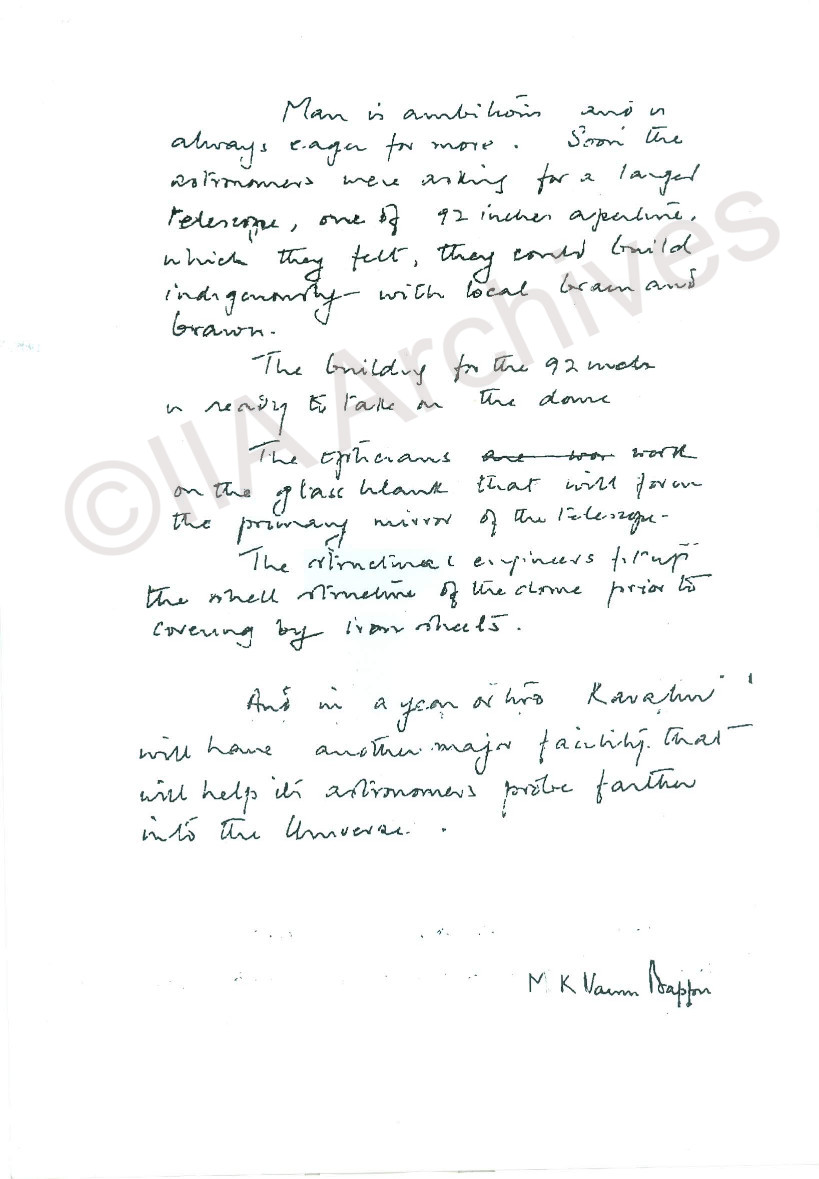 Man is ambitious and is
always eager for more. Soon the
astronomers were asking for a larger
telescope, one of 92 inches aperture.
which they felt, they could build
indigenously - with local brain and
brawn.
The building for the 92 inch
is ready to take on the dome
The opticians are wor work
on the glass blank that will form
the primary mirror of the telescope -
The structural engineers fit up
the shell structure of the dome prior to
covering by iron sheets.
And in a year or two Kavalur
will have another major facility that
will help its astronomers probe farther
into the Universe.
M K Vainu Bappu
©IIA Archives